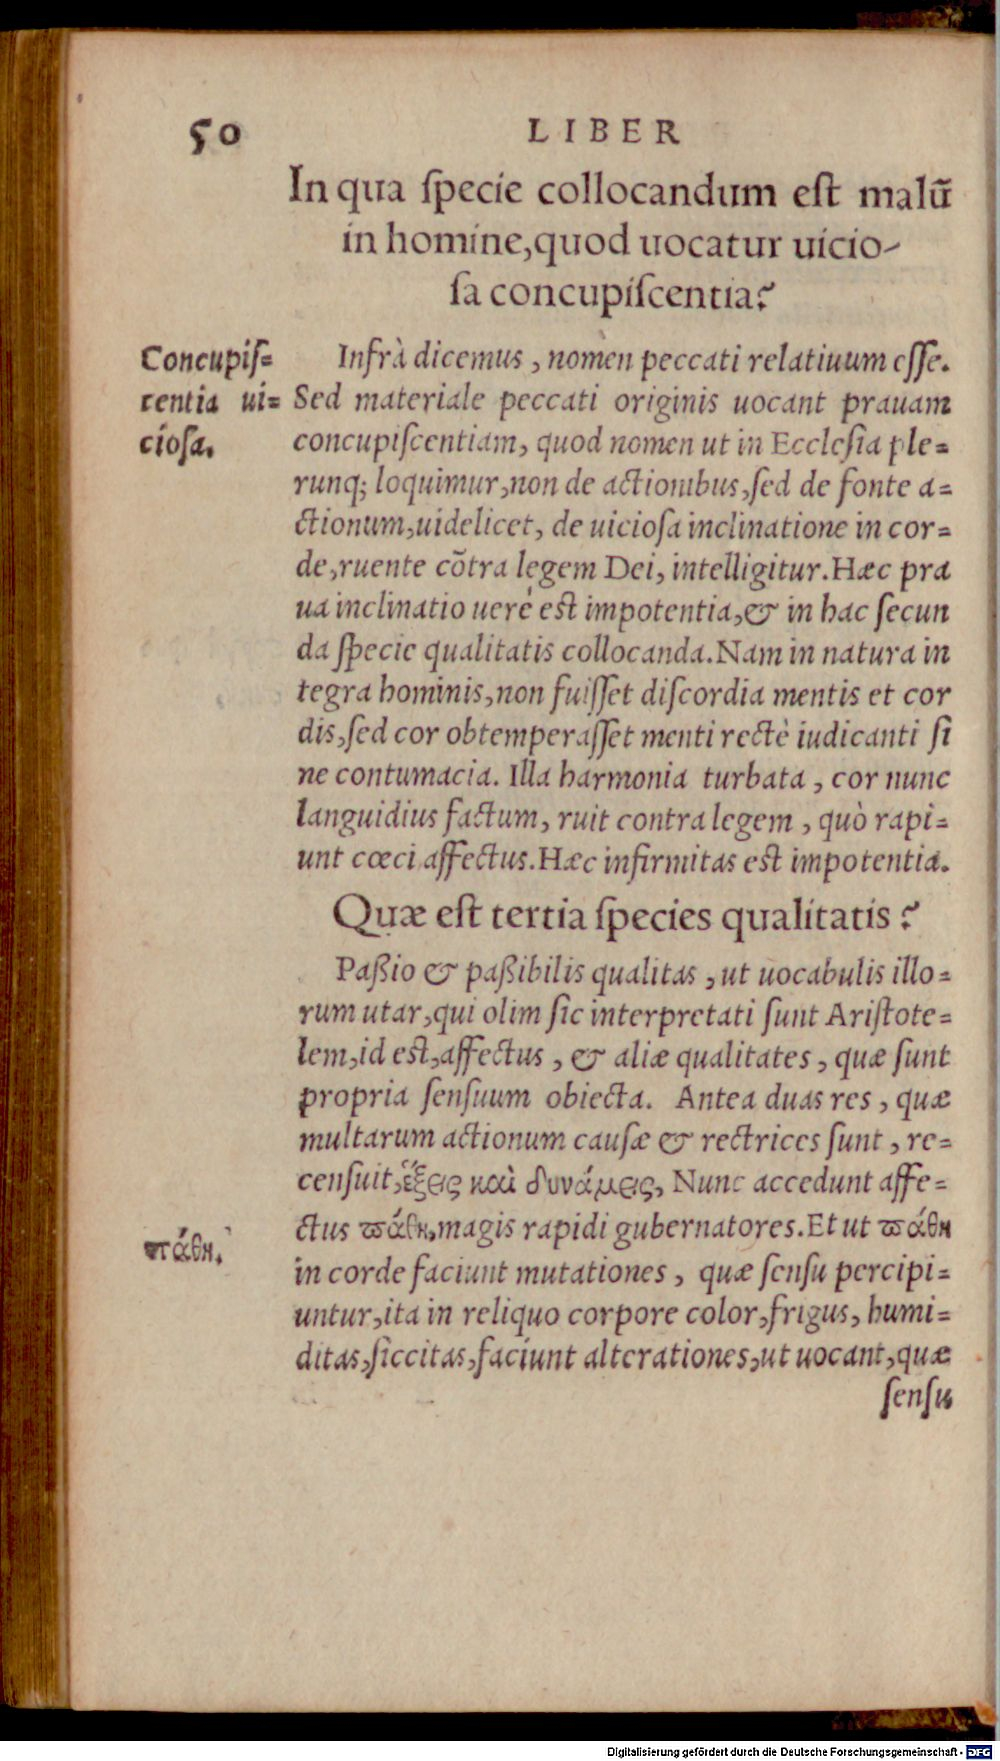 50 LIBER
In qua ſpecie collocandum eſt malũ
in homine, quod uocatur uicio-
ſa concupiſcentia?
Concupiſ=
centia ui=
cioſa.
Infrà dicemus, nomen peccati relatiuum eſſe.
Sed materiale peccati originis uocant prauam
concupiſcentiam, quod nomen ut in Eccleſia ple=
runq; loquimur, non de actionibus, ſed de fonte a=
ctionum, uidelicet, de uicioſa inclinatione in cor=
de, ruente cõtra legem Dei, intelligitur. Hæc pra
ua inclinatio uerè eſt impotentia, & in hac ſecun
da ſpecie qualitatis collocanda. Nam in natura in
tegra hominis, non fuiſſet diſcordia mentis et cor
dis, ſed cor obtemperaſſet menti rectè iudicanti ſi
ne contumacia. Illa harmonia turbata, cor nunc
languidius factum, ruit contra legem, quò rapi=
unt cœci affectus. Hæc infirmitas eſt impotentia.
Quæ eſt tertia ſpecies qualitatis?
Paßio & paßibilis qualitas, ut uocabulis illo=
rum utar, qui olim ſic interpretati ſunt Ariſtote=
lem, id eſt, affectus, & aliæ qualitates, quæ ſunt
propria ſenſuum obiecta. Antea duas res, quæ
multarum actionum cauſæ & rectrices ſunt, re=
cenſuit, ἕξεις καὶ δυνάμεις, Nunc accedunt affe=
ctus πάθη, magis rapidi gubernatores. Et ut πάθη
πάθη.
in corde faciunt mutationes, quæ ſenſu percipi=
untur, ita in reliquo corpore color, frigus, humi=
ditas, ſiccitas, faciunt alterationes, ut uocant, quæ
ſenſu
Digitalisierung gefördert durch die Deutsche Forschungsgemeinschaft - DFG